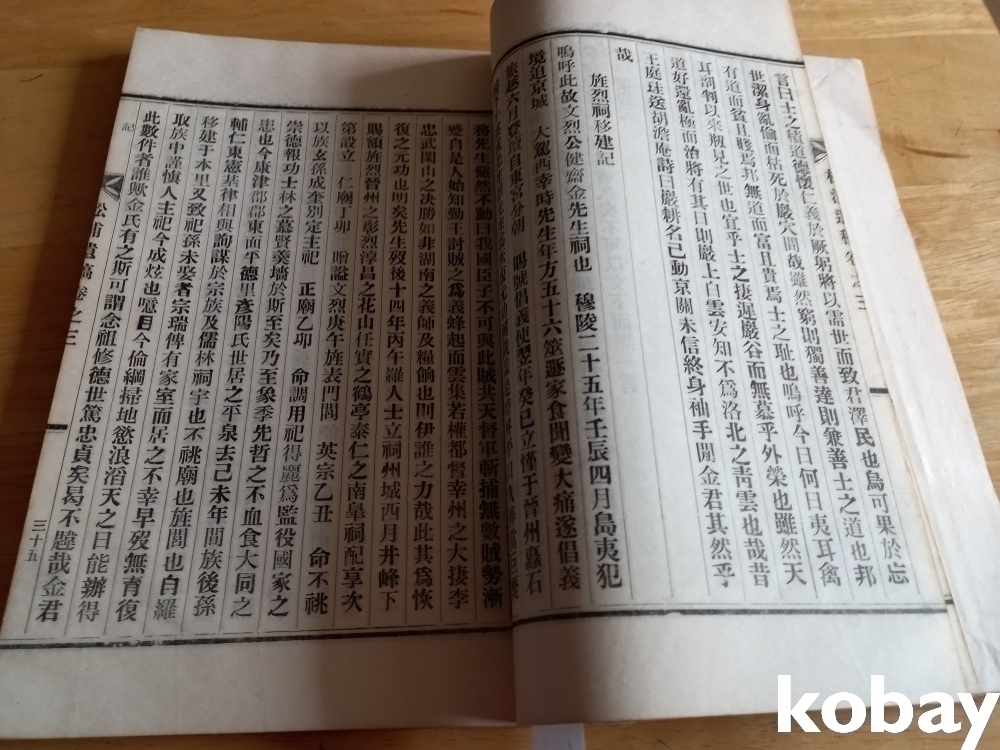 言曰士之積道德懷仁義於厥躬將以需世而致君澤民也烏可果於忘
世潔身亂倫而枯死於巖穴間哉雖然窮則獨善達則兼善士之道也邦
有道而貧且賤焉邦無道而富且貴焉士之耻也嗚呼今日何日夷耳禽
耳剖判以來刱見之世也宜乎士之棲遲巖谷而無慕乎外榮也雖然天
道好還亂極而治將有其日則巖上白雲安知不爲洛北之靑雲也哉昔
王庭珪送胡澹庵詩曰巖耕名已動京關未信終身袖手閒金君其然乎
哉
旌烈祠移建記
嗚呼此故文烈公健齋金先生祠也 穆陵二十五年壬辰四月島夷犯
境迫京城 大駕西幸時先生年方五十六筮遯家食聞變大痛遂倡義
旅越六月登
自東宮分朝 賜號倡義使翌年癸巳立慬于晉州矗石
務先生儼然不動曰我國臣子不可與此賊共天督軍斬捕無數賊勢漸
蹙自是人始知勤王討賊之爲義蜂起而雲集若權都督幸州之大捷李
忠武閑山之决勝如非湖南之義師及糧餉也則伊誰之力哉此其爲恢
復之元功也明矣先生歿後十四年丙午羅人士立祠州城西月井峰下
賜額旌烈晉州之彰烈淳昌之花山任實之鶴亭泰仁之南皐祠配享次
第設立 仁廟丁卯 贈謚文烈庚午旌表門閭 英宗乙丑 命不祧
以族玄孫成奎別定主祀 正廟乙卯 命調用祀得麗爲監役國家之
崇德報功士林之慕賢羹墻於斯至矣乃至象季先哲之不血食大同之
患也今康津郡郡東面平德里彦陽氏世居之平泉去己未年間族後孫
輔仁東憲基律相與詢謀於宗族及儒林祠宇也不祧廟也旌閭也自羅
移建于本里又致祀孫未娶者宗瑞俾有家室而居之不幸早歿無育復
取族中謹愼人主祀今成炫也噫 目今倫綱掃地慾浪滔天之日能辦得
此數件者誰歟金氏有之斯可謂念祖修德世篤忠貞矣曷不韙哉金君
記
松浦遺稿卷之三
三十五
kobay